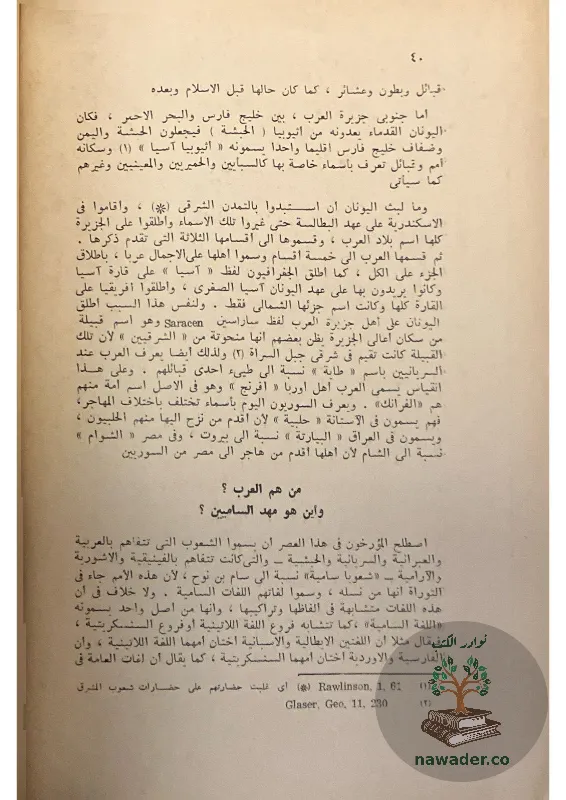 ٤٠
قبائل وبطون وعشائر ، كما كان حالها قبل الاسلام وبعده
اما جنوبى جزيرة العرب ، بين خليج فارس والبحر الاحمر ، فكان
اليونان القدماء يعدونه من اثيوبيا ( الحبشة ) فيجعلون الحبشة واليمن
وضفاف خليج فارس اقليما واحدا يسمونه « اثيوبيا آسيا » (١) وسكانه
أمم وقبائل تعرف بأسماء خاصة بها كالسبايين والحميريين والمعينيين وغيرهم
كما سيأتى
وما لبث اليونان ان استبدوا بالتمدن الشرقى (*) ، واقاموا فى
الاسكندرية على عهد البطالسة حتى غيروا تلك الاسماء واطلقوا على الجزيرة
كلها اسم بلاد العرب ، وقسموها الى أقسامها الثلاثة التى تقدم ذكرها .
ثم قسمها العرب الى خمسة اقسام وسموا أهلها على الاجمال عربا ، باطلاق
الجزء على الكل ، كما أطلق الجغرافيون لفظ « آسيا » على قارة آسيا
وكانوا يريدون بها على عهد اليونان آسيا الصغرى ، واطلقوا افريقيا على
القارة كلها وكانت اسم جزئها الشمالى فقط . ولنفس هذا السبب اطلق
اليونان على أهل جزيرة العرب لفظ ساراسين Saracen وهو اسم قبيلة
من سكان اعالى الجزيرة يظن بعضهم انها منحوتة من « الشرقيين » لأن تلك
القبيلة كانت تقيم فى شرقى جبل السراة (٢) ولذلك أيضا يعرف العرب عند
السريانيين باسم « طاية » نسبة الى طيىء احدى قبائلهم . وعلى هذا
القياس يسمى العرب أهل أوربا « افرنج » وهو فى الاصل اسم امة منهم
هم «الفرانك» . ويعرف السوريون اليوم بأسماء تختلف باختلاف المهاجر،
فهم يسمون فى الآستانة « حلبية » لأن أقدم من نزح اليها منهم الحلبيون ،
ويسمون فى العراق « البيارتة » نسبة الى بيروت ، وفى مصر « الشوام »
نسبة الى الشام لأن أهلها أقدم من هاجر الى مصر من السوريين
من هم العرب ؟
واين هو مهد الساميين ؟
اصطلح المؤرخون فى هذا العصر ان يسموا الشعوب التى تتفاهم بالعربية
والعبرانية والسريانية والحبشية ــ والتى كانت تتفاهم بالفينيقية والاشورية
والآرامية ــ «شعوبا سامية» نسبة الى سام بن نوح ، لأن هذه الأمم جاء فى
التوراة أنها من نسله ، وسموا لغاتهم اللغات السامية . ولا خلاف فى ان
هذه اللغات متشابهة فى ألفاظها وتراكيبها ، وانها من أصل واحد يسمونه
«اللغة السامية»، كما تتشابه فروع اللغة اللاتينية أو فروع السنسكريتية ،
فيقال مثلا ان اللغتين الايطالية والاسبانية أختان أمهما اللغة اللاتينية ، وان
الفارسية والاوردية أختان أمهما السنسكريتية ، كما يقال أن لغات العامة فى
(١) Rawlinson, 1, 61 (*) أى غلبت حضارتهم على حضارات شعوب المشرق
(٢) Glaser, Geo, 11, 230
نوادر الكتب
nawader.co